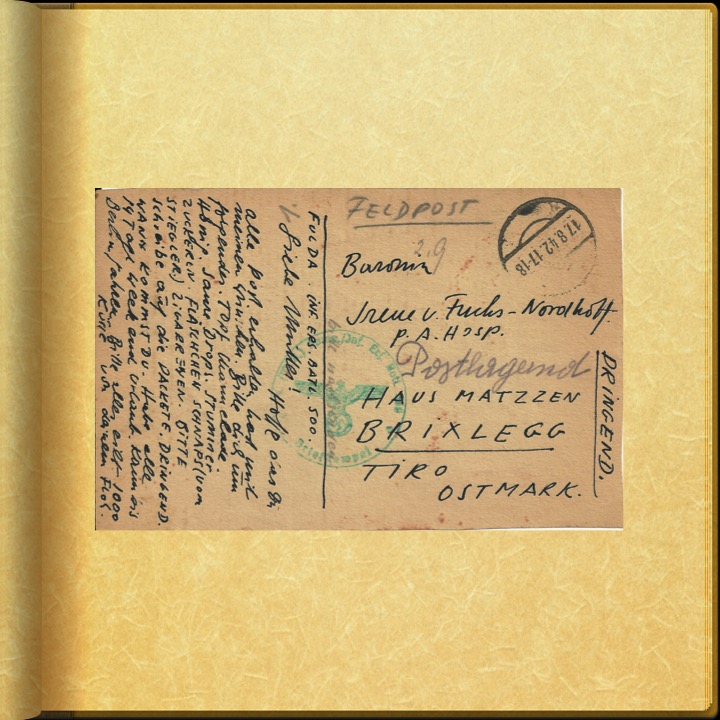 FELDPOST
17.8.42.17-18
2.9
Baronin
Irene v. Fuchs-Nordhoff.
p. A. HOSP.
Postlagernd
HAUS MATZZEN
BRIXLEGG
TIROL
OSTMARK.
DRINGEND.
FULDA. INF. ERS. BATL 500.
Liebe Mutter! Hoffe dass Du
alle Post erhalten hast mit
meinen Wünschen. Bitte dich um
folgendes. TOPF Marmelade
Honig, Saure Drops. STUMMER-
ZUCKERLN. FLÄSCHCHEN SCHNAPS (VOM
STIEGLER) ZIGARRETTEN. BITTE
SCHREIBE auf die PACKETE. DRINGEND.
WANN KOMMST DU. Habe alle
14 Tage Week end Urlaub. Kann bis
Berlin fahren. Bitte alles eilt. 1000
Küsse von deinem Fred.